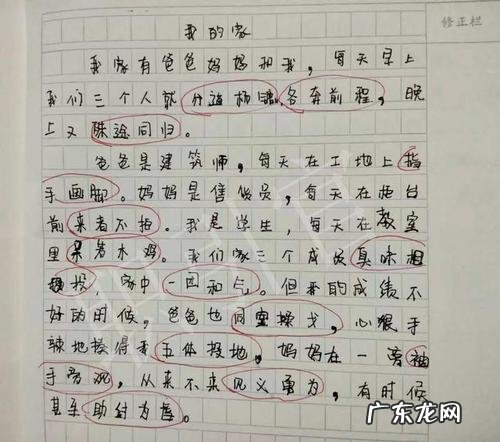 我的家
修正栏
我家有爸爸妈妈和我，每天早上
我们三个人就分道扬镳，各奔前程，晚
上又殊途同归。
爸爸是建筑师，每天在工地上指
手画脚。妈妈是售货员，每天在柜台
前来者不拒。我是学生，每天在教室
里呆若木鸡。我们家三个成员臭味相
投，家中一团和气。但我的成绩不
好的时候，爸爸也同室操戈，心狠手
辣地揍得我五体投地，妈妈在一旁袖
手旁观，从来不来见义勇为，有时候
甚至助纣为虐。
广东龙网